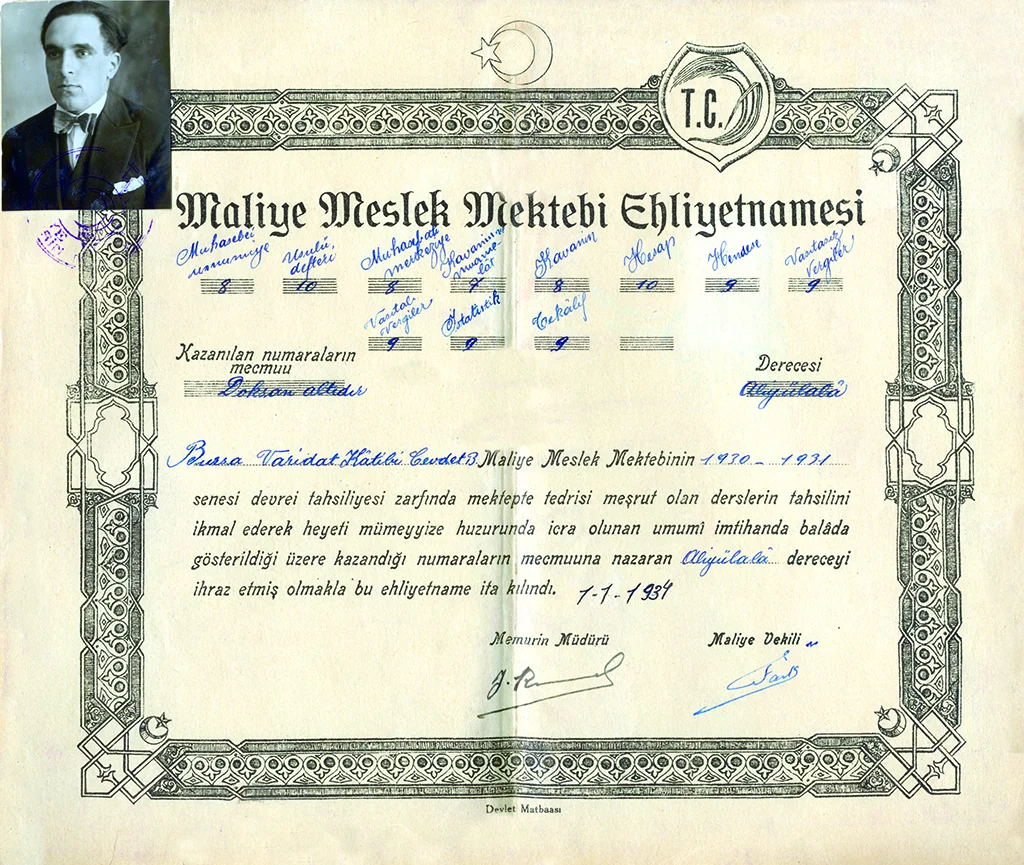 T.C.
Maliye Meslek Mektebi Ehliyetnamesi
Muhasebei umumiye
Usulü defteri
Muhasebei merkeziye
Kavanin muame- lât
Kavanin
Hesap
Hendese
Vasıtasız Vergiler
8 10 8 7 8 10 9 9
Vasıtalı Vergiler
İstatistik
Tekâlif
9 9 9
Kazanılan numaraların
mecmuu
Derecesi
Doksan altıdır
Aliyülalâ
Bursa Varidat Kâtibi Cevdet B. Maliye Meslek Mektebinin 1930 - 1931
senesi devrei tahsiliyesi zarfında mektepte tedrisi meşrut olan derslerin tahsilini
ikmal ederek heyeti mümeyyize huzurunda icra olunan umumî imtihanda balâda
gösterildiği üzere kazandığı numaraların mecmuuna nazaran Aliyülalâ dereceyi
ihraz etmiş olmakla bu ehliyetname ita kılındı. 1-1-1934
Memurin Müdürü
Maliye Vekili
Devlet Matbaası